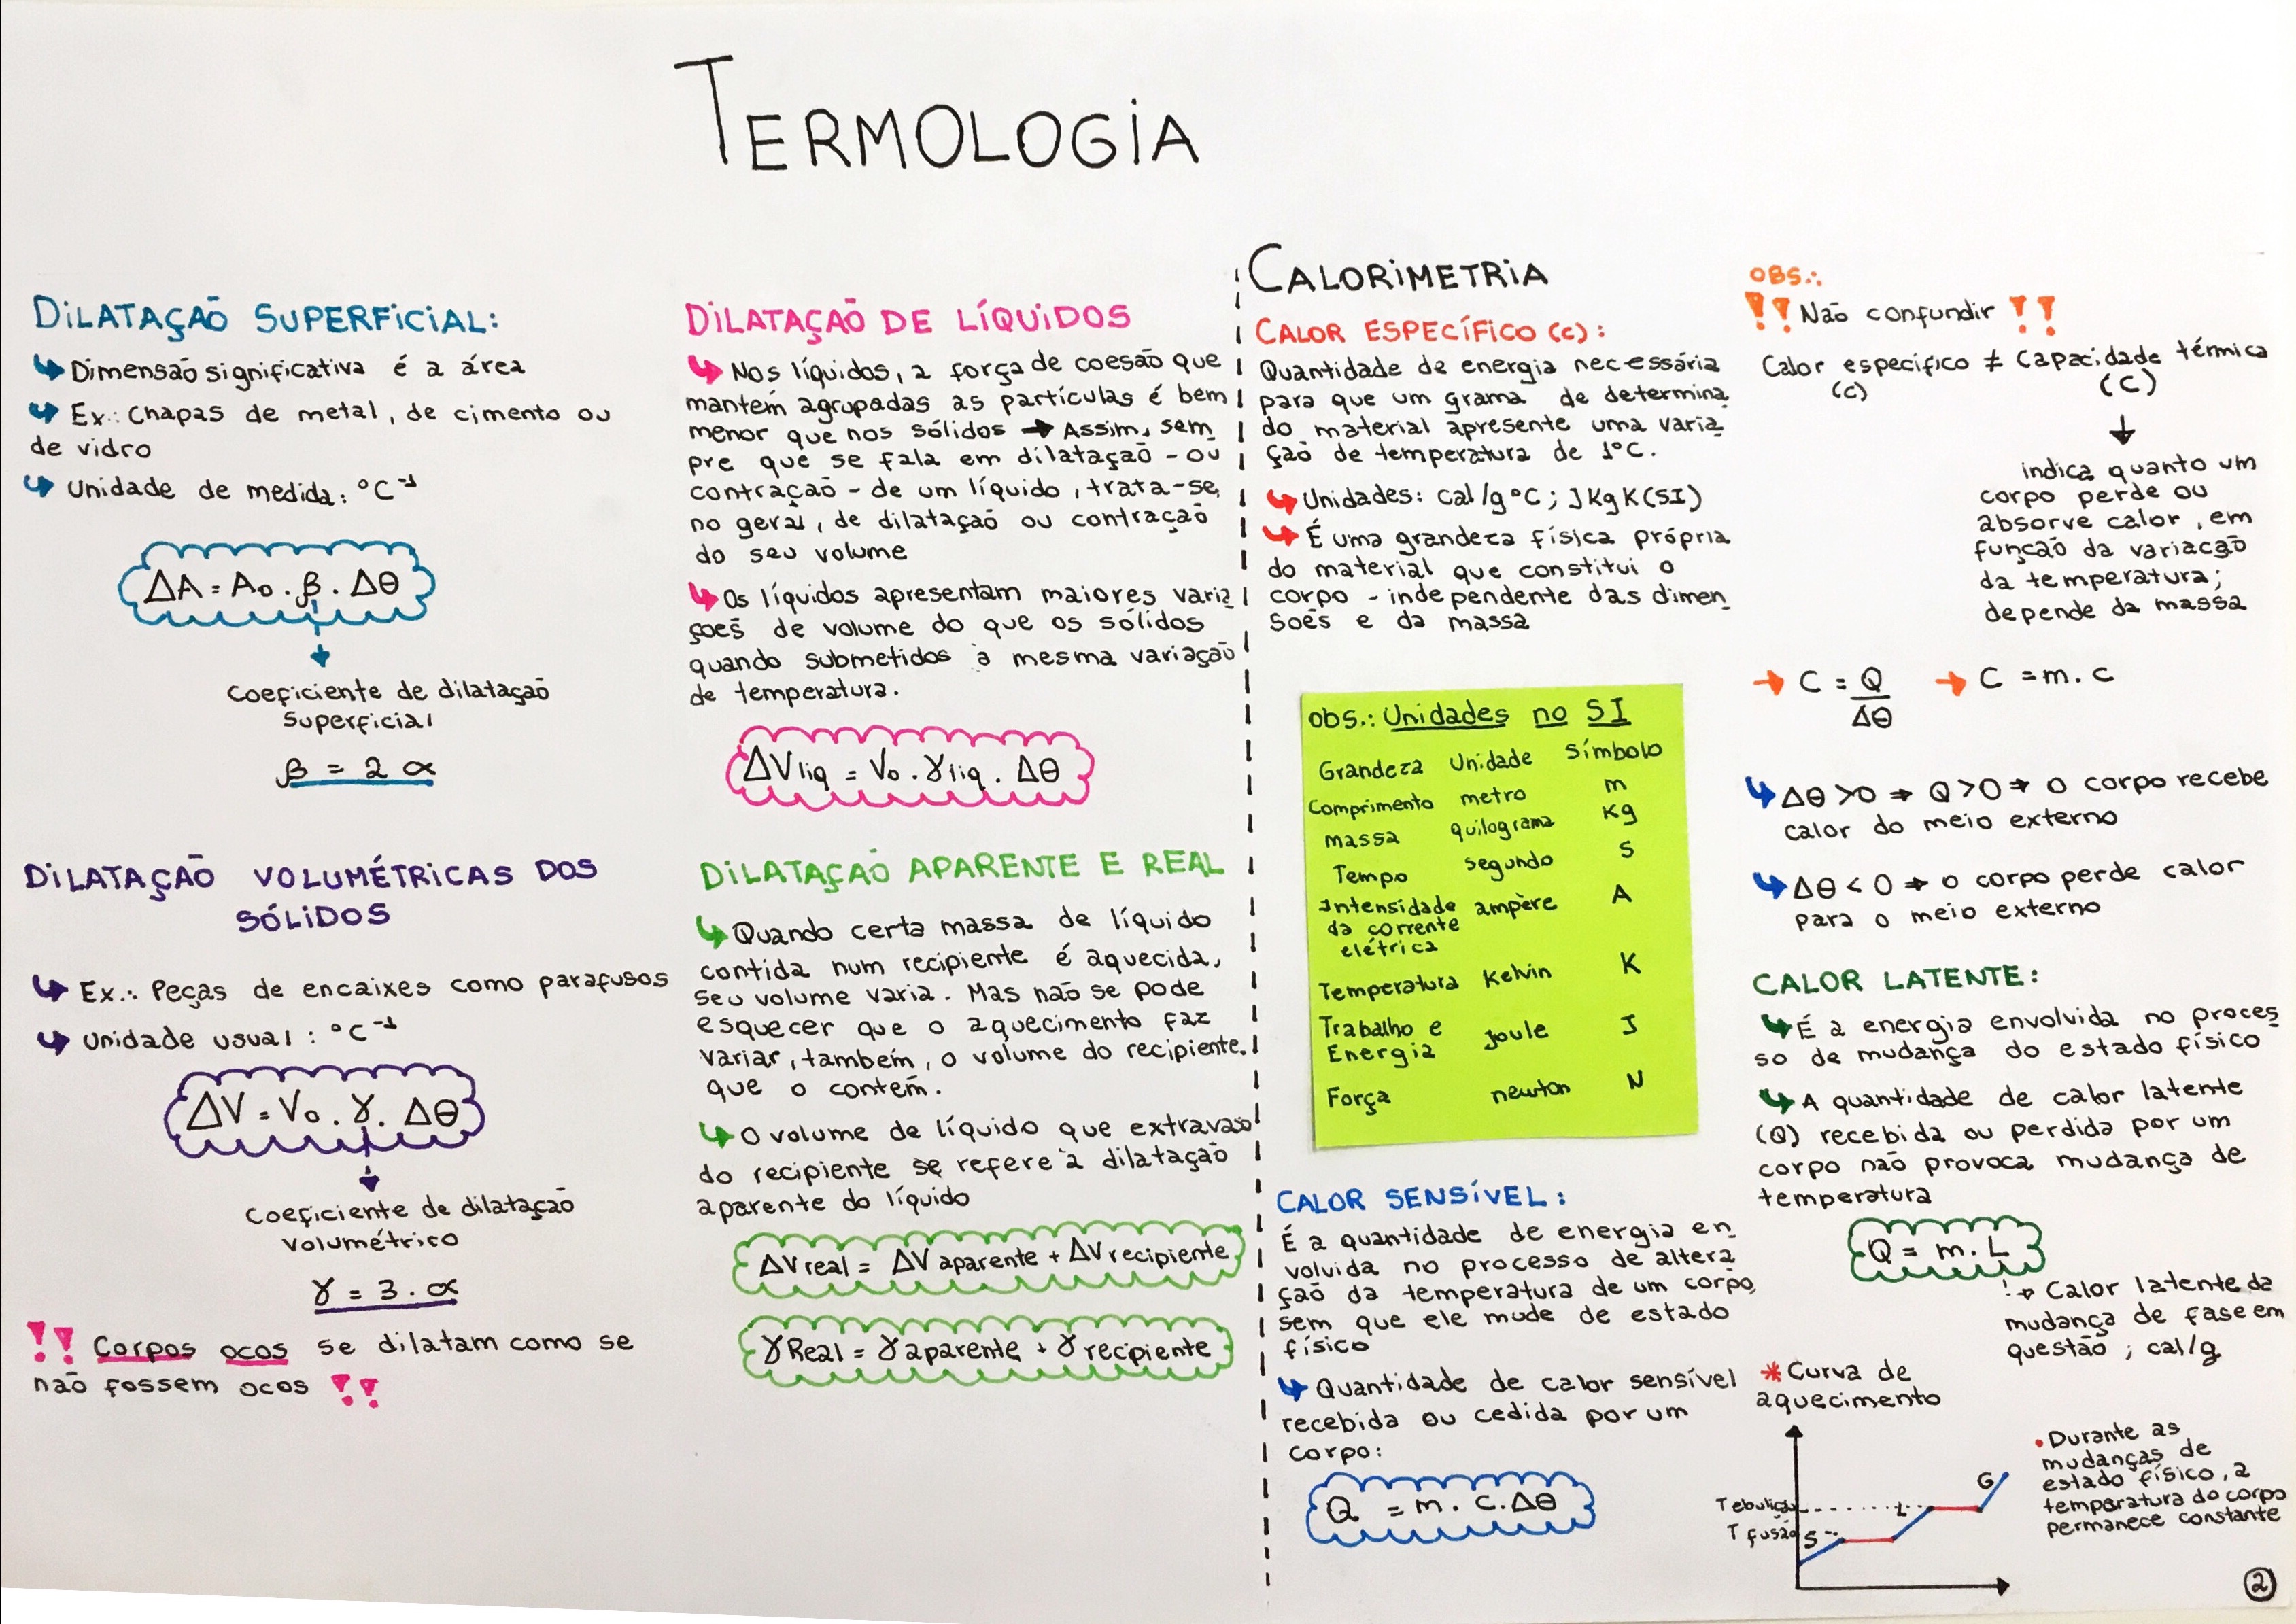 TERMOLOGIA
DILATAÇÃO SUPERFICIAL:
↳ Dimensão significativa é a área
↳ Ex.: Chapas de metal, de cimento ou
de vidro
↳ Unidade de medida: °C⁻¹
ΔA = A₀ . β . Δθ
Coeficiente de dilatação
Superficial
β = 2 α
DILATAÇÃO VOLUMÉTRICAS DOS
SÓLIDOS
↳ Ex.: Peças de encaixes como parafusos
↳ Unidade usual : °C⁻¹
ΔV = V₀ . γ . Δθ
Coeficiente de dilatação
Volumétrico
γ = 3 . α
!! Corpos ocos se dilatam como se
não fossem ocos !!
DILATAÇÃO DE LÍQUIDOS
↳ Nos líquidos, a força de coesão que
mantém agrupadas as partículas é bem
menor que nos sólidos → Assim, sem
pre que se fala em dilatação - ou
contração - de um líquido, trata-se,
no geral, de dilatação ou contração
do seu volume
↳ Os líquidos apresentam maiores varia
ções de volume do que os sólidos
quando submetidos à mesma variação
de temperatura.
ΔV liq = V₀ . γ liq . Δθ
DILATAÇÃO APARENTE E REAL
↳ Quando certa massa de líquido
contida num recipiente é aquecida,
seu volume varia. Mas não se pode
esquecer que o aquecimento faz
variar, também, o volume do recipiente.
que o contém.
↳ O volume de líquido que extravasa
do recipiente se refere à dilatação
aparente do líquido
ΔV real = ΔV aparente + ΔV recipiente
γ Real = γ aparente + γ recpiente
CALORIMETRIA
CALOR ESPECÍFICO (c) :
Quantidade de energia necessária
para que um grama de determina
do material apresente uma varia
ção de temperatura de 1°C.
↳ Unidades: cal/g°C ; J Kg K (SI)
↳ É uma grandeza física própria
do material que constitui o
corpo - independente das dimen
sões e da massa
obs.: Unidades no SI
Grandeza Unidade Símbolo
Comprimento metro m
massa quilograma Kg
Tempo segundo S
Intensidade ampère A
da corrente
elétrica
Temperatura Kelvin K
Trabalho e joule J
Energia
Força newton N
CALOR SENSÍVEL :
É a quantidade de energia en
volvida no processo de altera
ção da temperatura de um corpo,
sem que ele mude de estado
físico
↳ Quantidade de calor sensível
recebida ou cedida por um
corpo:
Q = m . c . Δθ
OBS.:
!! Não confundir !!
Calor específico ≠ Capacidade térmica
(c) (C)
indica quanto um
corpo perde ou
absorve calor, em
função da variacão
da temperatura;
depende da massa
→ C = Q/Δθ → C = m . c
↳ Δθ > 0 → Q > 0 → o corpo recebe
calor do meio externo
↳ Δθ < 0 → o corpo perde calor
para o meio externo
CALOR LATENTE:
↳ É a energia envolvida no proces
so de mudança do estado físico
↳ A quantidade de calor latente
(Q) recebida ou perdida por um
corpo não provoca mudança de
temperatura
Q = m . L
↳ Calor latente da
mudança de fase em
questão ; cal/g
* Curva de
aquecimento
T ebulição
T fusão
S
L
G
• Durante as
mudanças de
estado físico, a
temperatura do corpo
permanece constante
2